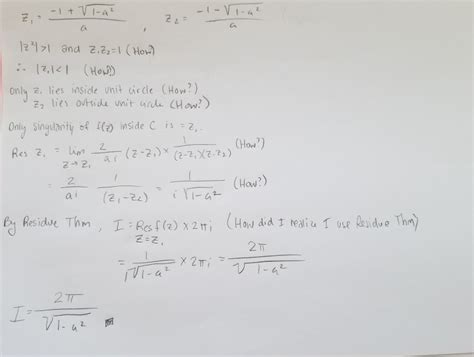 z₁ = (-1 + √(1-a²))/a , z₂ = (-1 - √(1-a²))/a
|z²|>1 and z,z₂=1 (How)
∴ |z,|<1 (How?)
Only z₁ lies inside unit circle (How?)
z₂ lies outside unit circle (How?)
Only singularity of f(z) inside C is = z₁.
Res z₁ = lim z→z₁ 2/ai (z-z₁) × 1/((z-z₁)(z-z₂)) (How?)
= 2/ai 1/(z₁-z₂) = 1/(i√(1-a²)) (How?)
By Residue Thm, I = Res z=z₁ f(z) × 2πi (How did I realize I use Residue Thm)
= 1/(i√(1-a²)) × 2πi = 2π/√(1-a²)
I = 2π/√(1-a²)